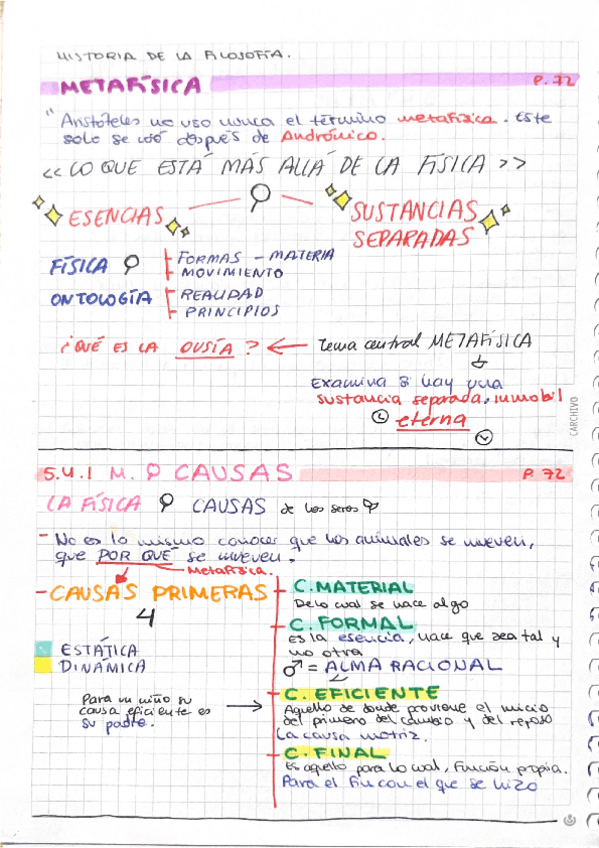 HISTORIA DE LA FILOSOFÍA.
METAFÍSICA P. 72
"Aristóteles no uso nunca el término metafísica. Este
solo se usó después de Andrónico.
<< LO QUE ESTÁ MÁS ALLÁ DE LA FÍSICA >>
ESENCIAS SUSTANCIAS
SEPARADAS
FÍSICA FORMAS - MATERIA
MOVIMIENTO
ONTOLOGÍA REALIDAD
PRINCIPIOS
¿QUÉ ES LA OUSÍA? ← Tema central METAFÍSICA
Examina si hay una
sustancia separada, inmobil
eterna
CARCHIVO
5.4.1 M. CAUSAS P. 72
LA FÍSICA CAUSAS de los seres
- No es lo mismo conocer que los animales se mueven,
que POR QUÉ se mueven.
Metafísica.
- CAUSAS PRIMERAS
4
C. MATERIAL
De lo cual se hace algo
C. FORMAL
es la esencia, hace que sea tal y
no otra
♂ = ALMA RACIONAL
ESTÁTICA
DINÁMICA
Para un niño su
causa eficiente es
su padre. →
C. EFICIENTE
Aquello de donde proviene el inicio
del primero del cambio y del reposo
La causa motriz.
C. FINAL
Es aquello para lo cual, función propia.
Para el fin con el que se hizo